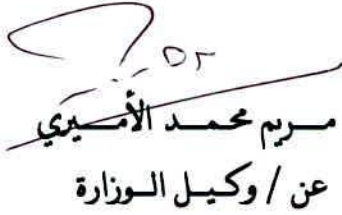 مريم محمد الأميري
عن / وكيل الوزارة